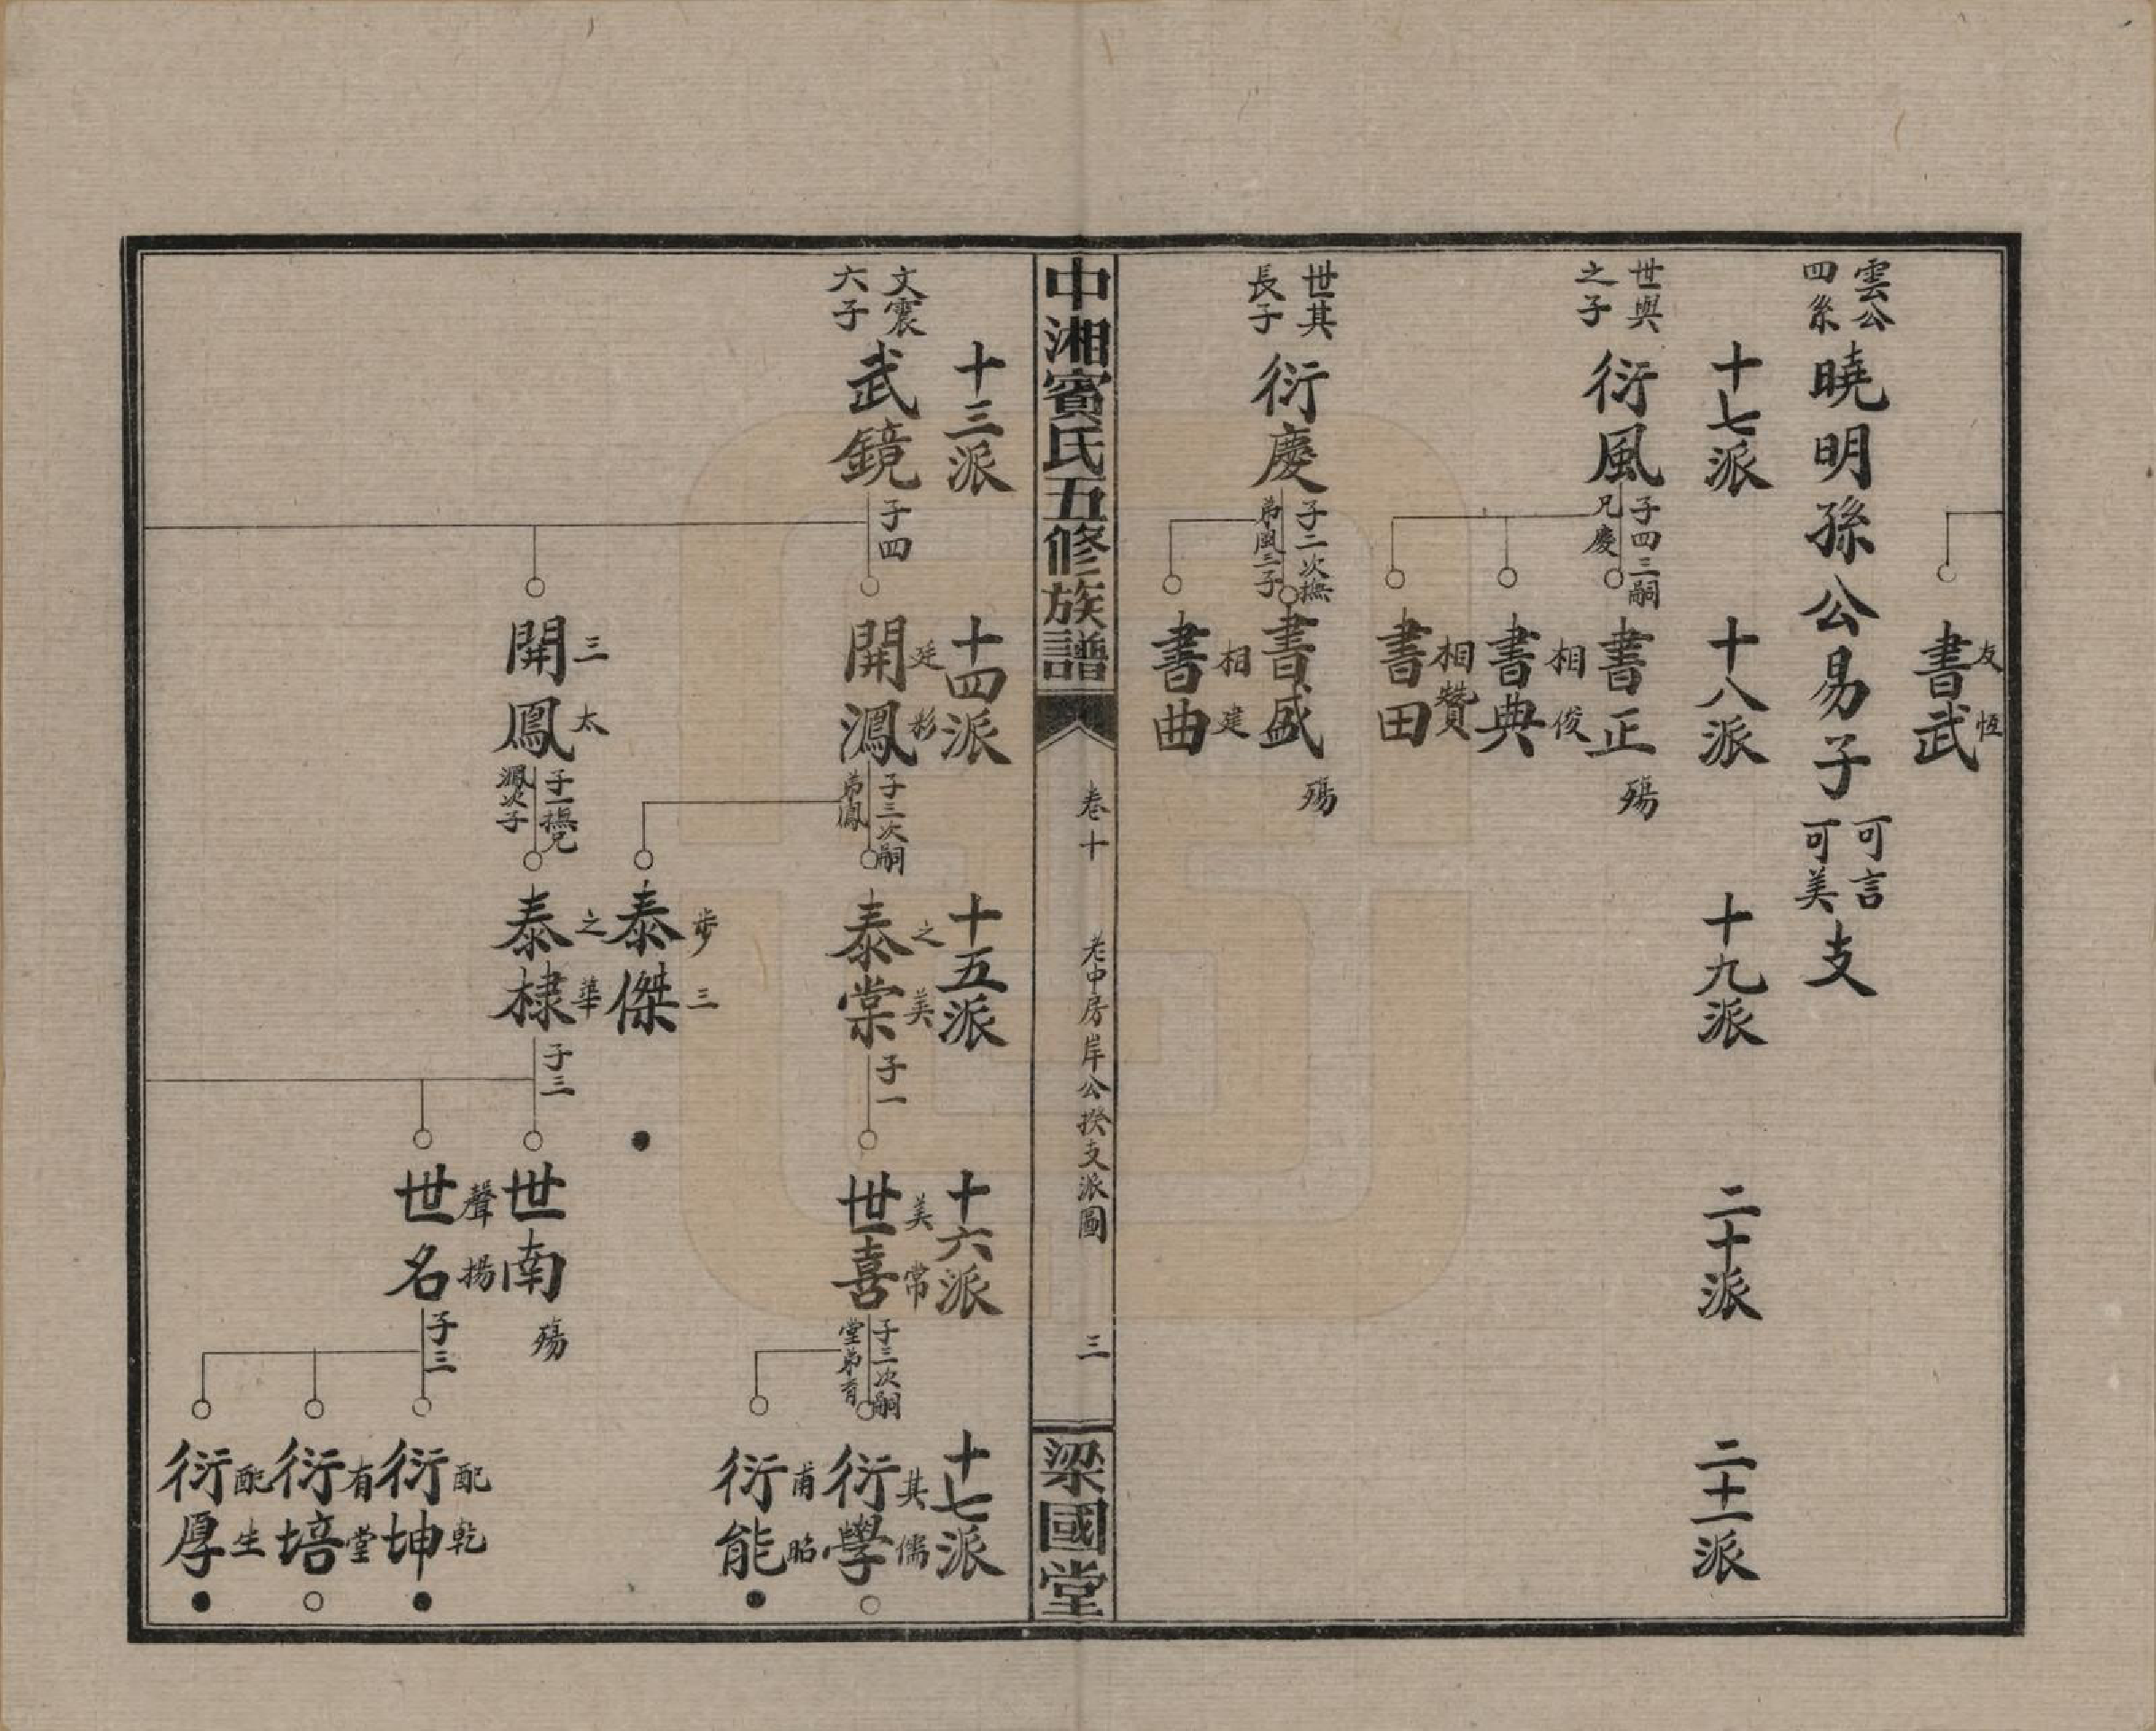 書武
友恆
雲公四系
曉明孫公易子
可言可美
支
十七派
十八派
十九派
二十派
二十一派
世與之子
衍風
子四三嗣兄慶
書正
殤
相俊
書典
相贊
書田
世其長子
衍慶
子二次撫弟風三子
書盛
殤
相建
書曲
中湘賓氏五修族譜
卷十
老中房岸公揆支派圖
三
梁國堂
十三派
十四派
十五派
十六派
十七派
文震六子
武鏡
子四
廷彩
開鴻
子三次嗣弟鳳
之美
泰棠
子一
美常
世喜
子三次嗣堂弟有
其儒
衍學
甫昭
衍能
步三
泰傑
三太
開鳳
子一撫兄鴻次子
之華
泰棣
子三
世南
殤
聲揚
世名
子三
配乾
衍坤
有堂
衍培
配生
衍厚